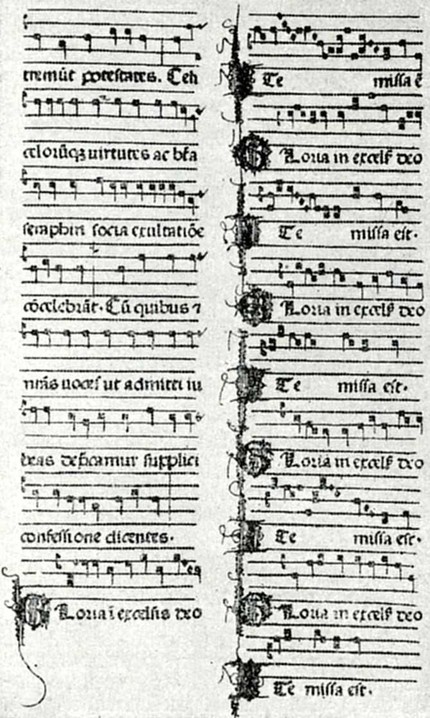 tremūt potestates. Celi
celorūqꝫ virtutes ac bt̄a
seraphin socia exultatiōe
cōcelebrāt. Cū quibus ⁊
nr̄as uoces ut admitti iu
beas deṗcamur supplici
confessione dicentes.
Gloria ī excelsis deo
Ite missa ē
Gloria in excels̄ deo
Ite missa est.
Gloria in excels̄ deo
Ite missa est.
Gloria in excels̄ deo
Ite missa est.
Gloria in excels̄ deo
Ite missa est.